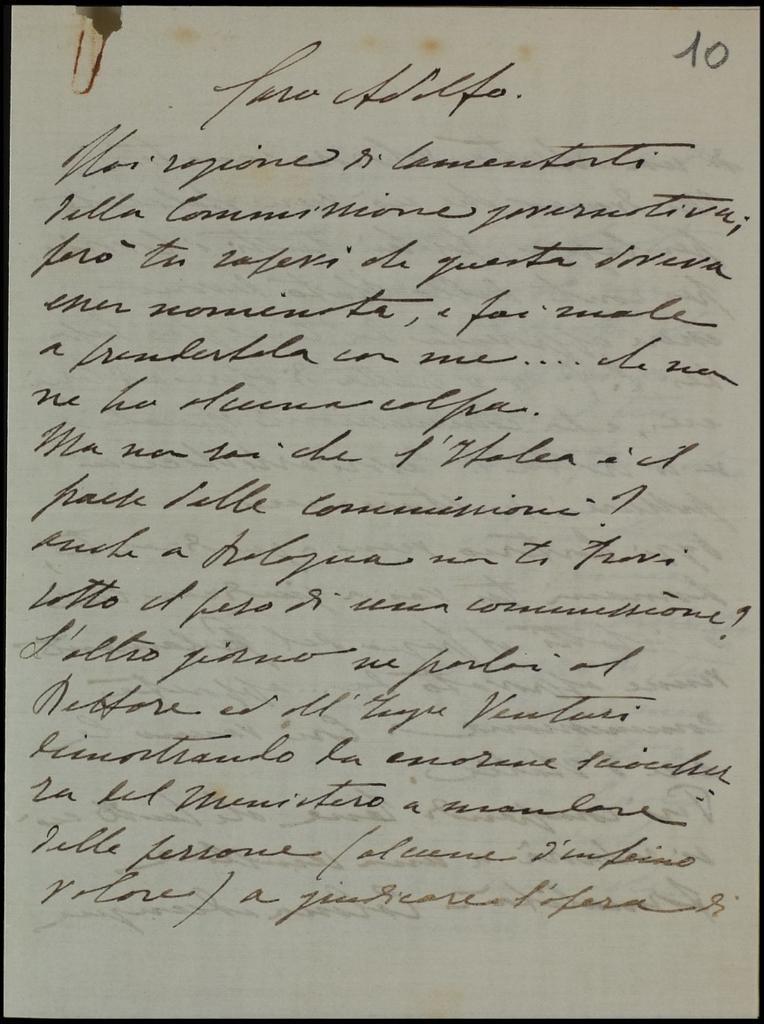 10
Caro Adolfo.
Hai ragione di lamentarti
della Commissione governativa;
però tu sapevi che questa doveva
esser nominata, e fai male
a prendertela con me.... che non
ne ho alcuna colpa.
Ma non sai che l'Italia è il
paese delle commissioni?
anche a Bologna non ti trovi
sotto il peso di una commissione?
L'altro giorno ne parlai al
Rettore ed all' Venturi
dimostrando la enorme sciocchez
za del Ministero a mandare
delle persone (alcune d'infimo
valore) a giudicare l'opera di